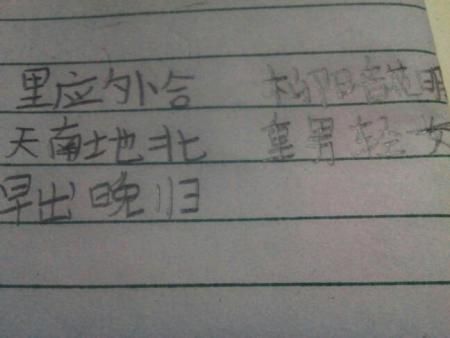 里应外合
天南地北 重男轻女
早出晚归